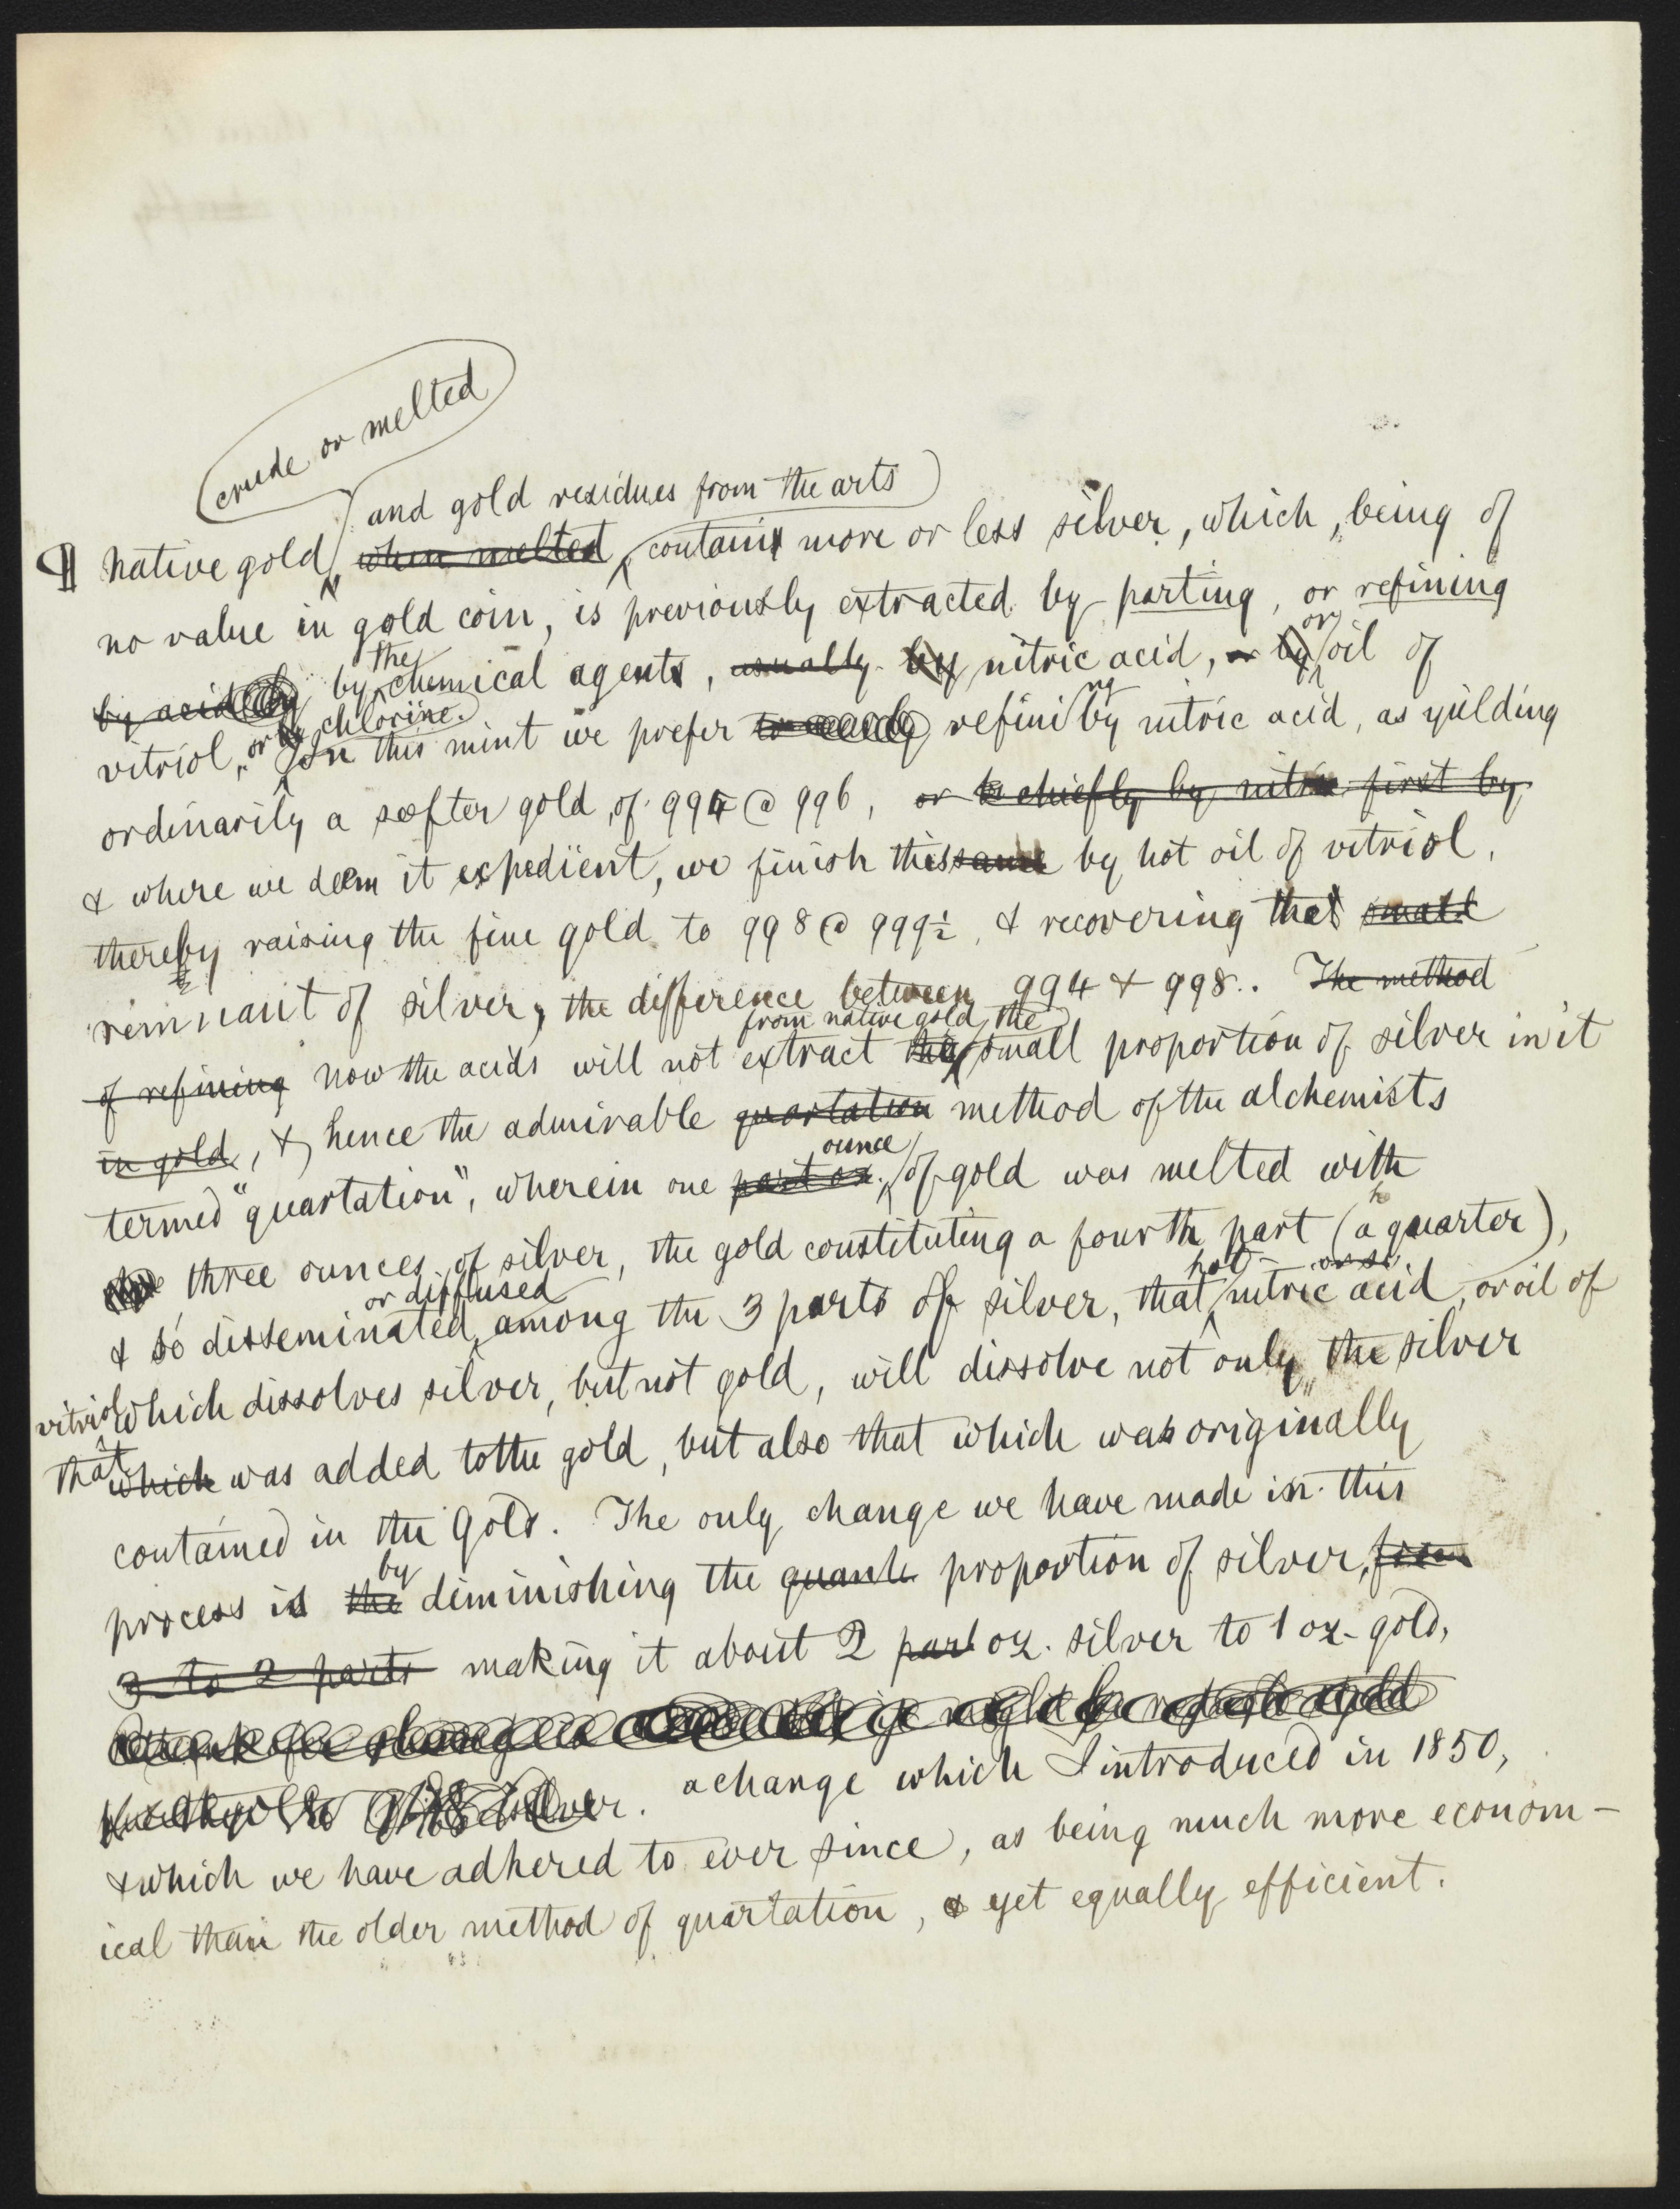 crude or melted
and gold residues from the arts
¶ Native gold when melted contains more or less silver, which, being of
no value in gold coin, is previously extracted by parting, or refining
the or
by acid by chemical agents, usually by nitric acid, or by oil of
or by chlorine. ng
vitriol, In this mint we prefer to refini by nitric acid, as yielding
ordinarily a softer gold, of 994 @ 996, or is chiefly by nitric first by
& where we deem it expedient, we finish this same by hot oil of vitriol,
thereby raising the fine gold to 998 @ 999½, & recovering that small
remnant of silver, the difference between 994 & 998.. The method
from native gold, the
of refining now the acids will not extract the small proportion of silver in it
in gold, & hence the admirable quartation method of the alchemists
ounce
termed "quartation", wherein one part oz. of gold was melted with
three ounces of silver, the gold constituting a fourth part (a quarter),
or diffused hot or so
& so disseminated among the 3 parts of silver, that nitric acid, or oil of
vitriol which dissolves silver, but not gold, will dissolve not only the silver
that which was added to the gold, but also that which was originally
contained in the gold. The only change we have made in this
by
process is the diminishing the quanti proportion of silver, from
3 to 2 parts making it about 2 part oz. silver to 1 oz. gold,
silver. a change which I introduced in 1850,
& which we have adhered to ever since, as being much more econom-
ical than the older method of quartation, & yet equally efficient.